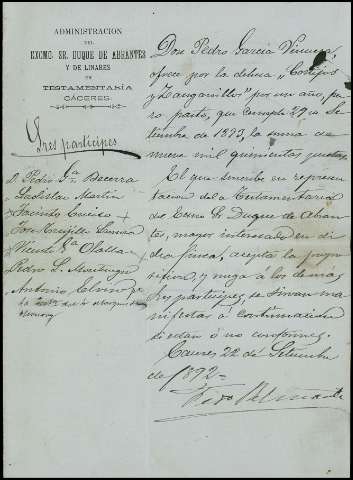 ADMINISTRACION
DEL
EXCMO. SR. DUQUE DE ABRANTES
Y DE LINARES
EN
TESTAMENTARÍA
CÁCERES
Sres participes
D. Pedro Gª Becerra
" Ladislao Martin
" Jacinto
" José Trujillo
" Vicente Gª Olalla
" Pedro L.
" Antonio
Don Pedro Garcia
ofrece por la dehesa, "Cortijos
y Zangarrillos" por un año, pu-
ro pasto, que cumplirá 29 de Se-
tiembre de 1893, la suma de
nueve mil quinientas pesetas.
El que suscribe en represen-
tacion de la Testamentaría
del Excmo Sr. Duque de Abran-
tes, mayor interesado en di-
cha finca, acepta la propo-
sitiva, y ruega á los demas
Sres participes, se sirvan ma-
nifestar á continuacion
si están ó no conformes.
Caceres 22 de Setiembre
de 1892 =